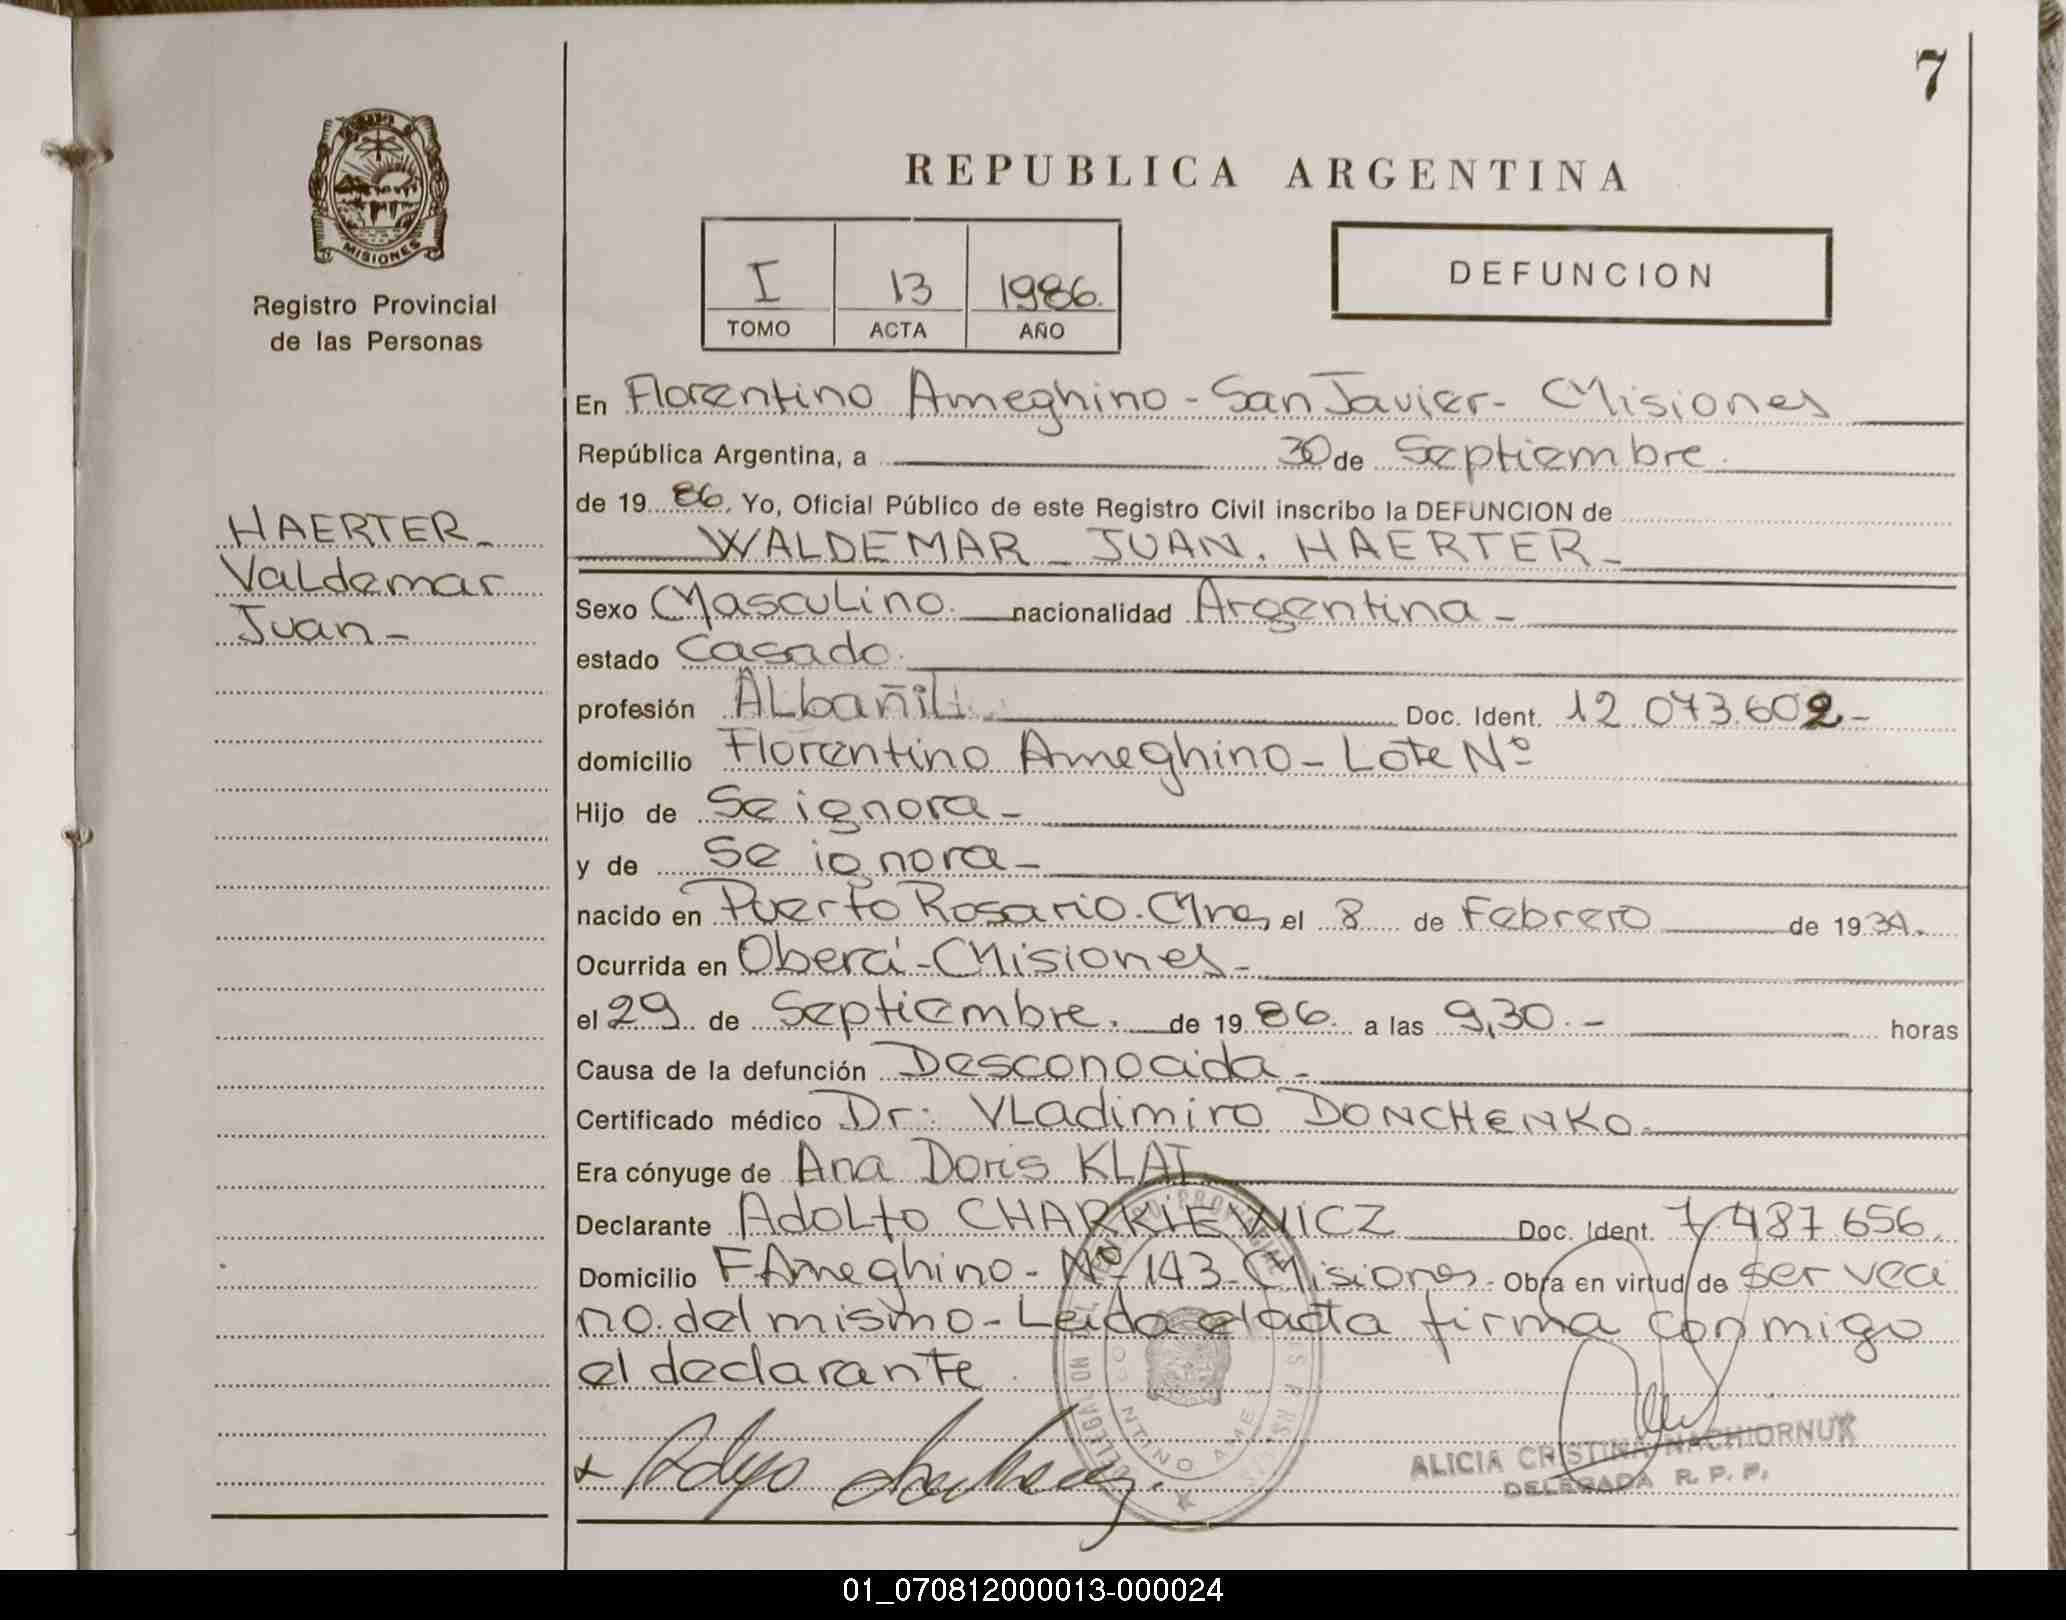 7
MISIONES
Registro Provincial
de las Personas
REPUBLICA ARGENTINA
I 13 1986.
TOMO ACTA AÑO
DEFUNCION
HAERTER_
Valdemar
Juan-
En Florentino Ameghino - San Javier - Misiones
República Argentina, a 30 de Septiembre.
de 19 86. Yo, Oficial Público de este Registro Civil inscribo la DEFUNCION de
WALDEMAR _ JUAN. HAERTER_
Sexo Masculino. nacionalidad Argentina -
estado Casado.
profesión ALbañiL Doc. Ident. 12.073.602-
domicilio Florentino Ameghino - Lote Nº
Hijo de Se ignora -
y de Se ignora -
nacido en Puerto Rosario. Mnes, el 8 de Febrero de 1934.
Ocurrida en Oberá - Misiones -
el 29 de Septiembre. de 19 86. a las 9,30. - horas
Causa de la defunción Desconocida -
Certificado médico Dr: VLadimiro DONCHENKO.
Era cónyuge de Ana Doris KLAT
Declarante AdoLfo CHARKIEWICZ Doc. Ident. 7.487.656.
Domicilio F Ameghino - Nº 143 - Misiones - Obra en virtud de ser veci
no. del mismo - Leida el acta firma conmigo
el declarante.
ALICIA CRISTINA NACHIORNUK
DELEGADA R. P. P.
01_070812000013-000024